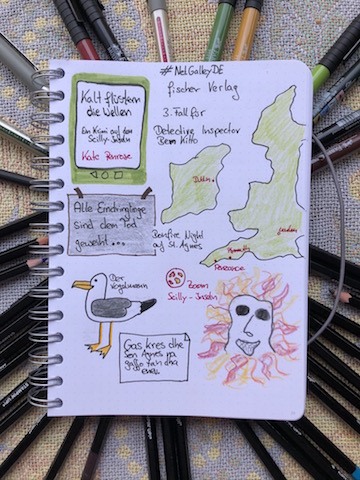 #NetGalleyDE
fischer Verlag
3. Fall für
Detective Inspector
Ben Kitto
Kalt flüstern
die Wellen
Ein Krimi auf den
Scilly-Inseln
Kate Penrose
Dublin
London
Plymouth
Penzance
Alle Eindringlinge
sind dem Tod
geweiht...
Bonfire Night
auf St. Agnes
Der
Vogelmensch
Boom
Scilly-Inseln
Gas kres dhe
Sen Agnes pa
gallo'ran dha